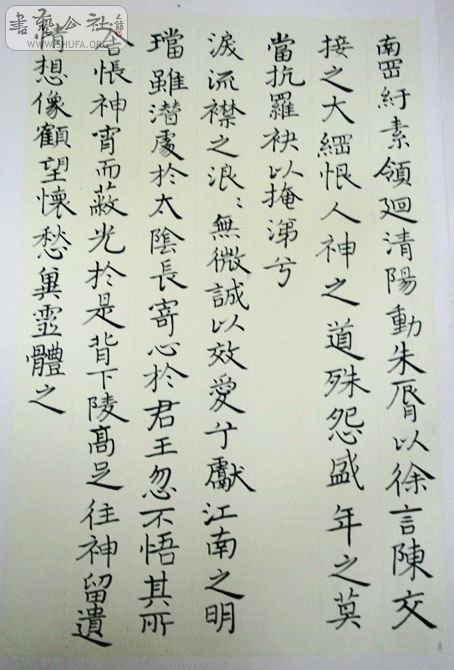 書藝公社
WWW.SHUFA.COM
南罡紆素領廻清陽動朱脣以徐言陳交
接之大綱恨人神之道殊怨盛年之莫
當抗羅袂以掩涕兮
淚流襟之浪〻無微誠以效愛兮獻江南之明
璫雖潛處於太陰長寄心於君王忽不悟其所
舍悵神宵而蔽光於是背下陵高足往神留遺
想像顧望懷愁冀靈體之